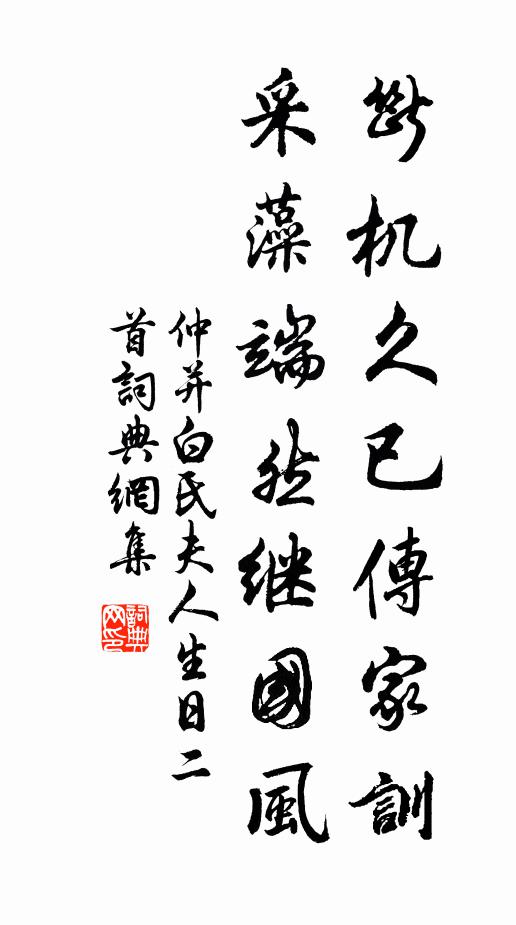 斷机久已傳家訓
采藻端然继國風
仲并白氏夫人生日二
首詞典網集
詞典网印